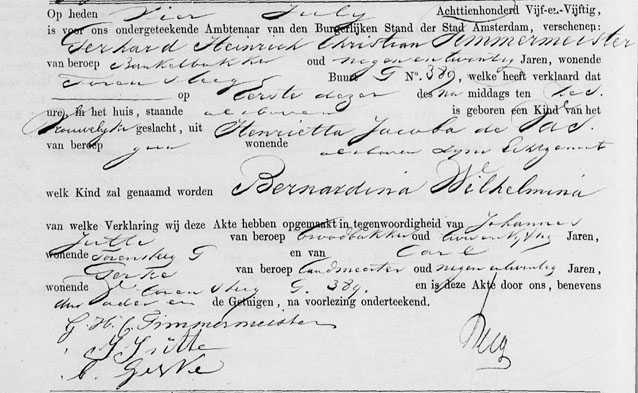 Op heden Vier July Achttienhonderd Vijf-en-Vijftig,
is voor ons ondergeteekende Ambtenaar van den Burgerlijken Stand der Stad Amsterdam, verschenen:
Gerhard Heinrich Christian Timmermeister
van beroep Banketbakker oud negen en twintig Jaren, wonende
Torensteeg Buurt G No. 389, welke heeft verklaard dat
op Eerste dezer des na middags ten zes
ure, in het huis, staande alsboven is geboren een Kind van het
Vrouwelijke geslacht, uit Henrietta Jacoba de
van beroep geen wonende alsboven zijne Echtgenoot
welk Kind zal genaamd worden Bernardina Wilhelmina
van welke Verklaring wij deze Akte hebben opgemaakt in tegenwoordigheid van Johannes
Jutte van beroep broodbakker oud Jaren,
wonende Torensteeg G en van Carl
Gerke van beroep oud negen en twintig Jaren,
wonende Torensteeg G. 389. en is deze Akte door ons, benevens
den vader en de Getuigen, na voorlezing onderteekend.
G. H. C. Timmermeister
J Jutte
C. Gerke